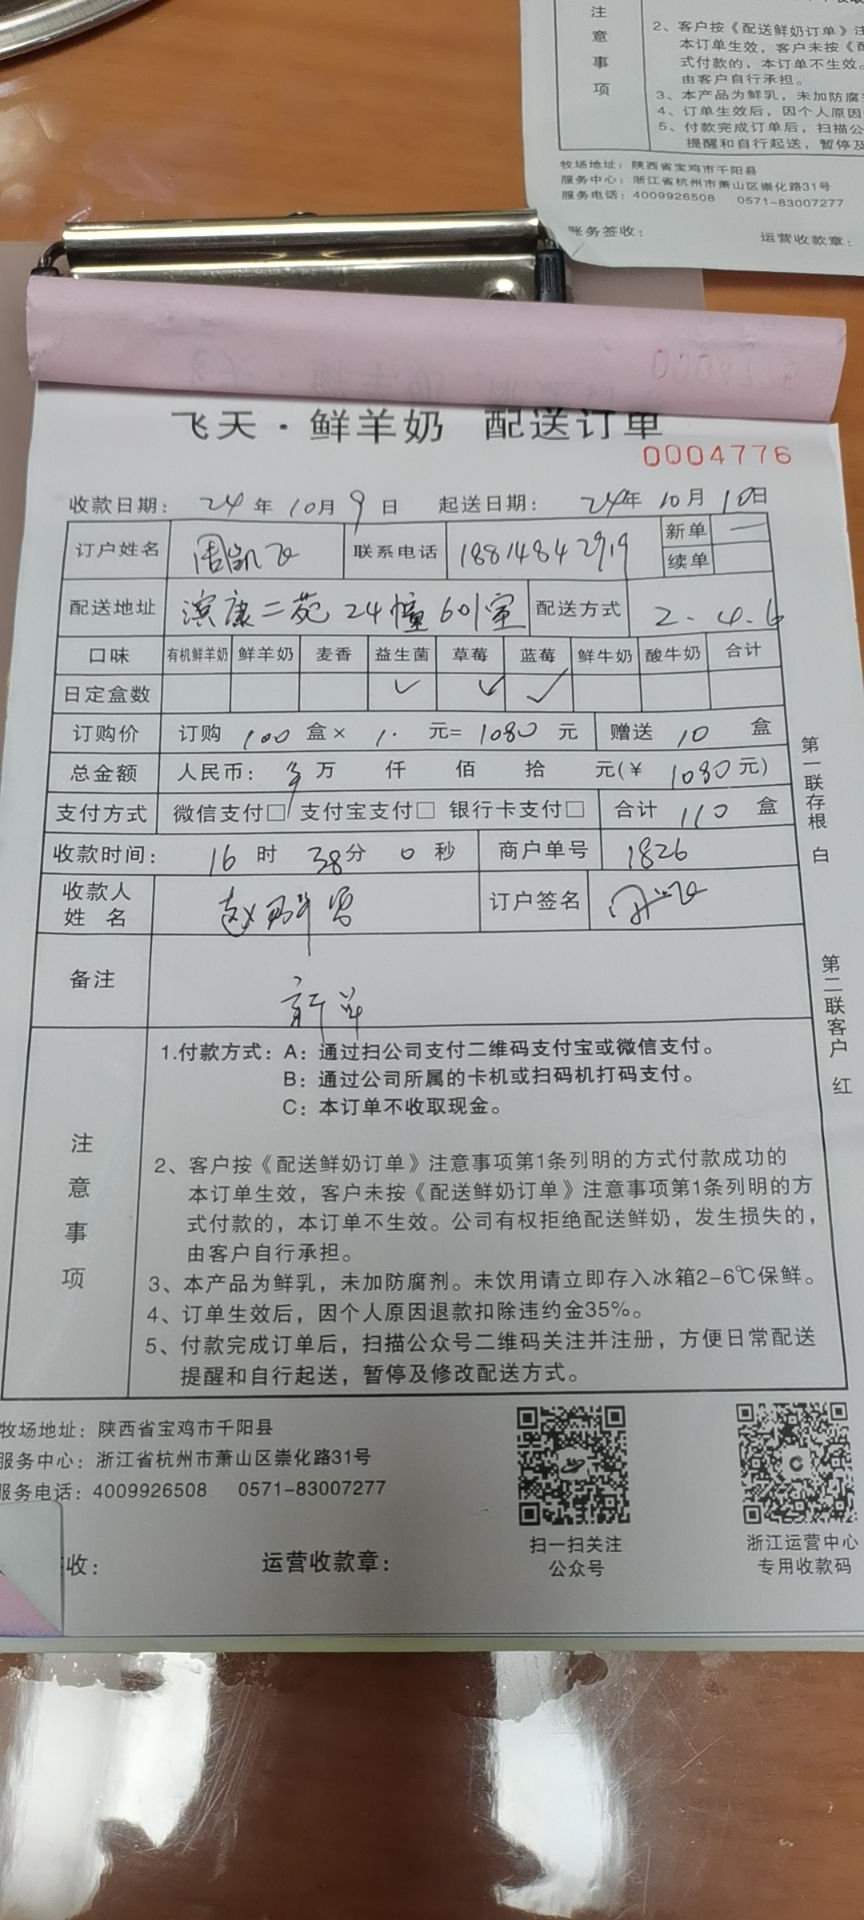 注
意
事
项
2、客户按《配送鲜奶订单》注
本订单生效，客户未按《配
式付款的，本订单不生效。
由客户自行承担。
3、本产品为鲜乳，未加防腐
4、订单生效后，因个人原因
5、付款完成订单后，扫描公
提醒和自行起送，暂停及
牧场地址：陕西省宝鸡市千阳县
服务中心：浙江省杭州市萧山区崇化路31号
服务电话：4009926508 0571-83007277
账务签收： 运营收款章：
飞天·鲜羊奶 配送订单
0004776
收款日期： 24年10月9日 起送日期： 24年10月10日
订户姓名 周凯飞 联系电话 18814842919 新单 一
续单
配送地址 滨康二苑24幢601室 配送方式 2.4.6
口味 有机鲜羊奶 鲜羊奶 麦香 益生菌 草莓 蓝莓 鲜牛奶 酸牛奶 合计
日定盒数 ✓ ✓ ✓
订购价 订购 100 盒× 1. 元= 1080 元 赠送 10 盒
总金额 人民币： 万 仟 佰 拾 元(¥ 1080元)
支付方式 微信支付□ 支付宝支付□ 银行卡支付□ 合计 110 盒
收款时间： 16 时 38分 0 秒 商户单号 1826
收款人
姓 名 赵 订户签名
备注 新单
注
意
事
项
1.付款方式：A：通过扫公司支付二维码支付宝或微信支付。
B：通过公司所属的卡机或扫码机打码支付。
C：本订单不收取现金。
2、客户按《配送鲜奶订单》注意事项第1条列明的方式付款成功的
本订单生效，客户未按《配送鲜奶订单》注意事项第1条列明的方
式付款的，本订单不生效。公司有权拒绝配送鲜奶，发生损失的，
由客户自行承担。
3、本产品为鲜乳，未加防腐剂。未饮用请立即存入冰箱2-6℃保鲜。
4、订单生效后，因个人原因退款扣除违约金35%。
5、付款完成订单后，扫描公众号二维码关注并注册，方便日常配送
提醒和自行起送，暂停及修改配送方式。
第一联存根 白
第二联客户 红
牧场地址：陕西省宝鸡市千阳县
服务中心：浙江省杭州市萧山区崇化路31号
服务电话：4009926508 0571-83007277
扫一扫关注
公众号
浙江运营中心
专用收款码
收： 运营收款章：